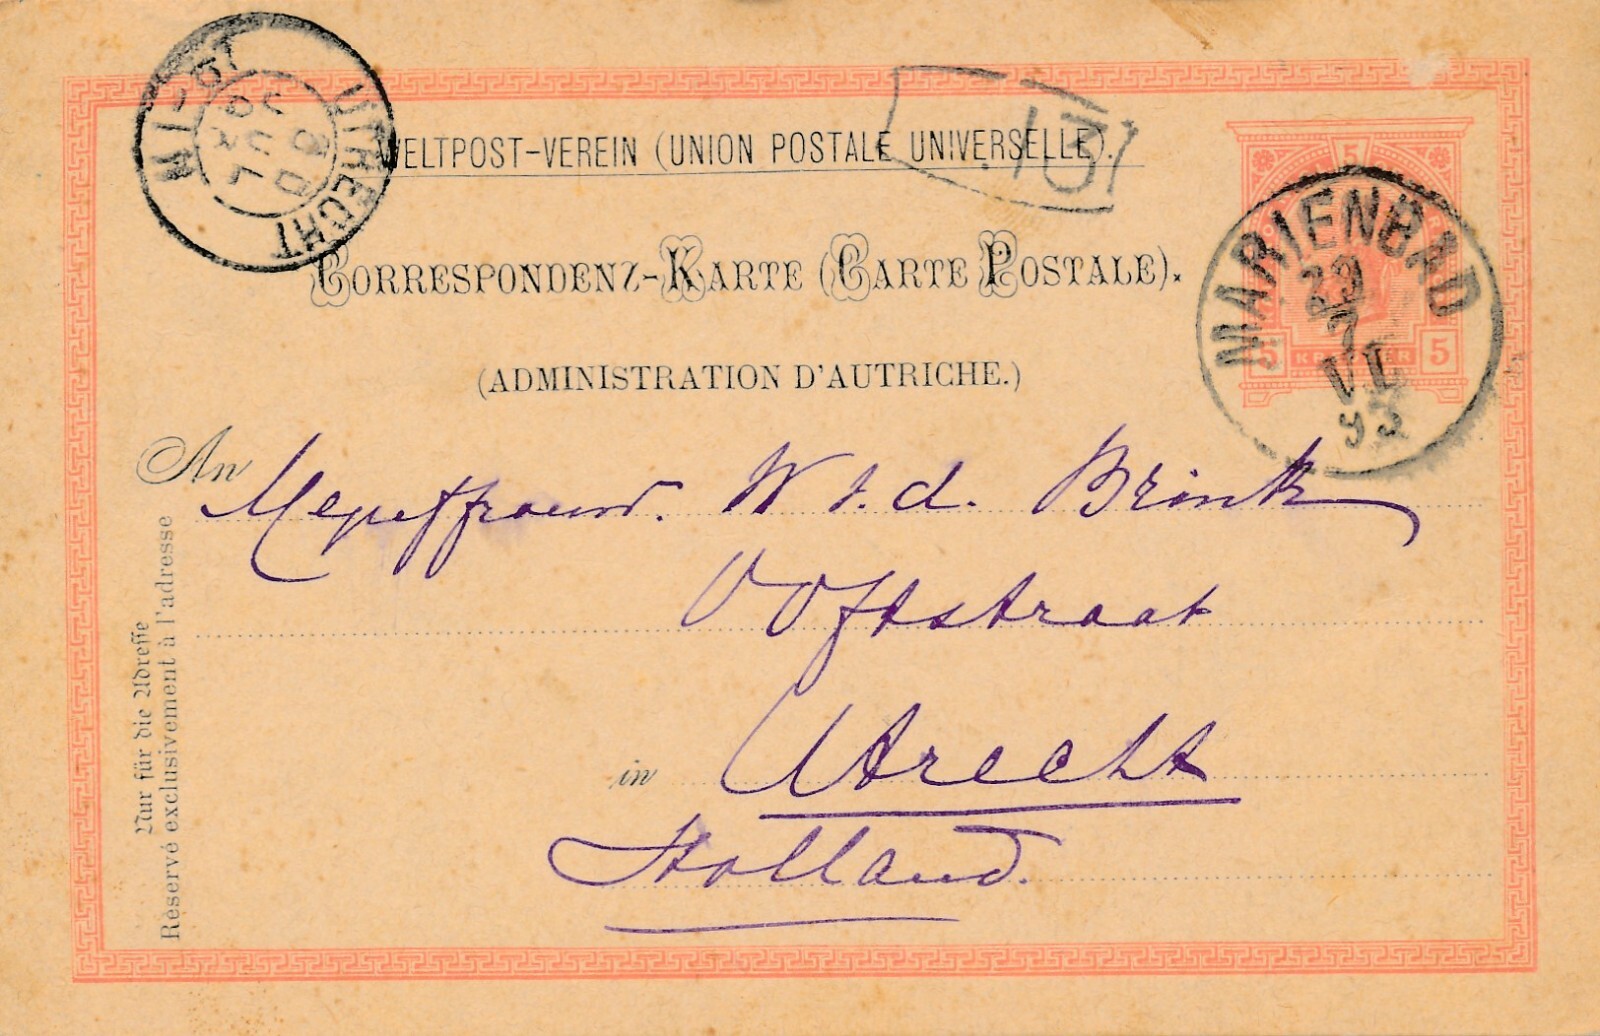 WELTPOST-VEREIN (UNION POSTALE UNIVERSELLE).
CORRESPONDENZ-KARTE (CARTE POSTALE).
(ADMINISTRATION D'AUTRICHE.)
UTRECHT
131
5
5 KREUZER 5
MARIENBAD
29
7
VI
93
An Mejuffrouw. W v. d. Brink
Ooftstraat
in Utrecht
Holland.
Nur für die Adresse
Réservé exclusivement à l'adresse